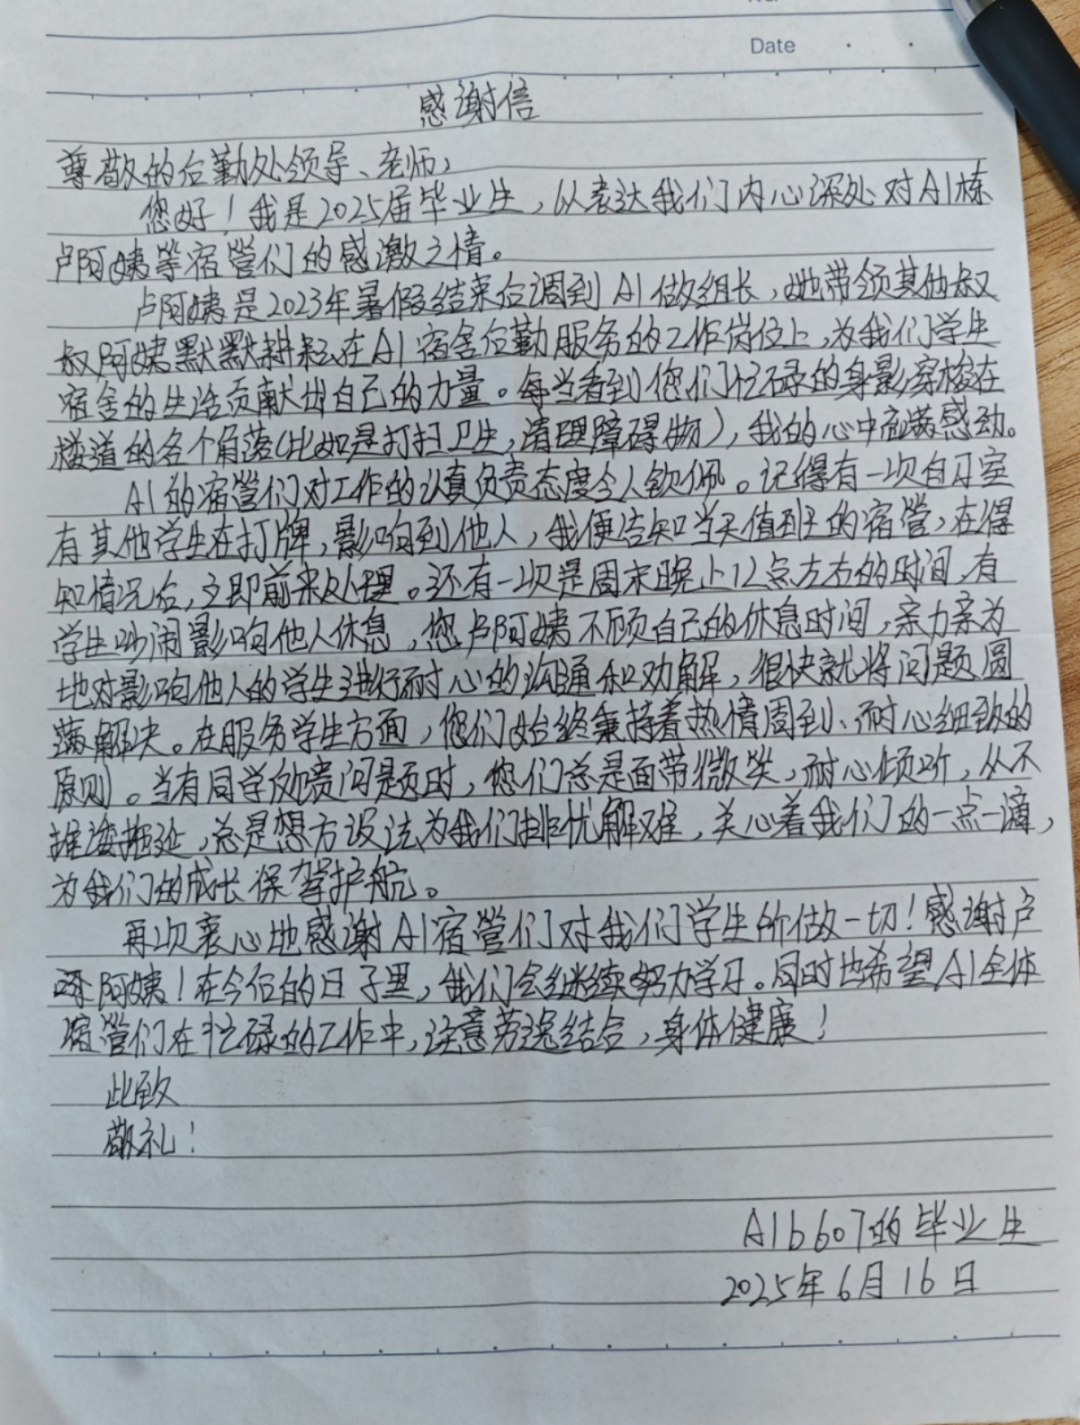 Date
感谢信
尊敬的后勤处领导、老师,
您好!我是2025届毕业生,以表达我们内心深处对A1栋
卢阿姨等宿管们的感激之情。
卢阿姨是2023年暑假结束后调到A1做组长,她带领其他叔
叔阿姨默默耕耘在A1宿舍后勤服务的工作岗位上,为我们学生
宿舍的生活贡献出自己的力量。每当看到您们忙碌的身影穿梭在
楼道的各个角落(比如是打扫卫生,清理障碍物),我的心中充满感动。
A1的宿管们对工作的认真负责态度令人钦佩。记得有一次自习室
有其他学生在打牌,影响到他人,我便告知当天值班的宿管,在得
知情况后,立即前来处理。还有一次是周末晚上12点左右的时间,有
学生吵闹影响他人休息,您卢阿姨不顾自己的休息时间,亲力亲为
地对影响他人的学生进行耐心的沟通和劝解,很快就将问题圆
满解决。在服务学生方面,您们始终秉持着热情周到、耐心细致的
原则。当有同学反馈问题时,您们总是面带微笑,耐心倾听,从不
推诿拖延,总是想方设法为我们排忧解难,关心着我们的一点一滴,
为我们的成长保驾护航。
再次衷心地感谢A1宿管们对我们学生所做一切!感谢卢
阿姨!在今后的日子里,我们会继续努力学习。同时也希望A1全体
宿管们在忙碌的工作中,注意劳逸结合,身体健康!
此致
敬礼!
A1b607的毕业生
2025年6月16日